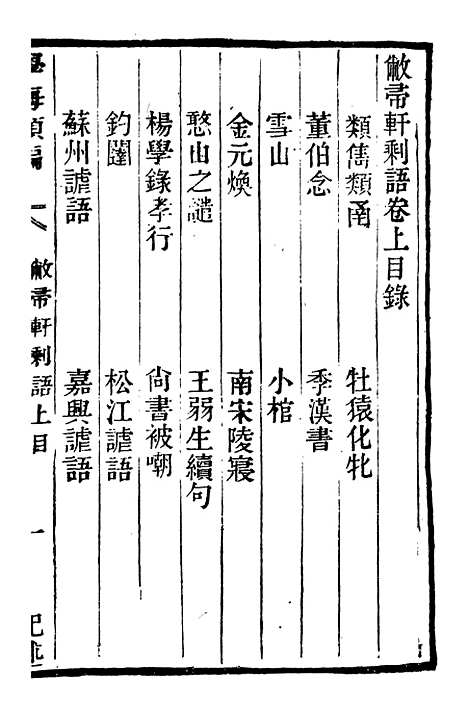 敝帚軒剩語卷上目錄
類雋類函　牡猿化牝
董伯念　季漢書
雪山　小棺
金元煥　南宋陵寢
憨山之譴　王弱生續句
楊學錄孝行　尙書被嘲
釣闥　松江謔語
蘇州謔語　嘉興謔語
學海類編　敝帚軒剩語上目　一　記述